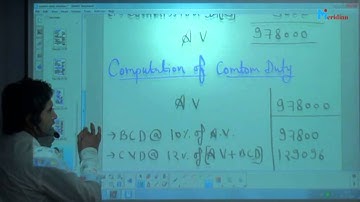 Meridian
A V 978000
Computation of Comtom Duty
A V 978000
→ BCD @ 10% of A.V. 97800
→ CVD @ 12%. of [AV + BCD] 129096